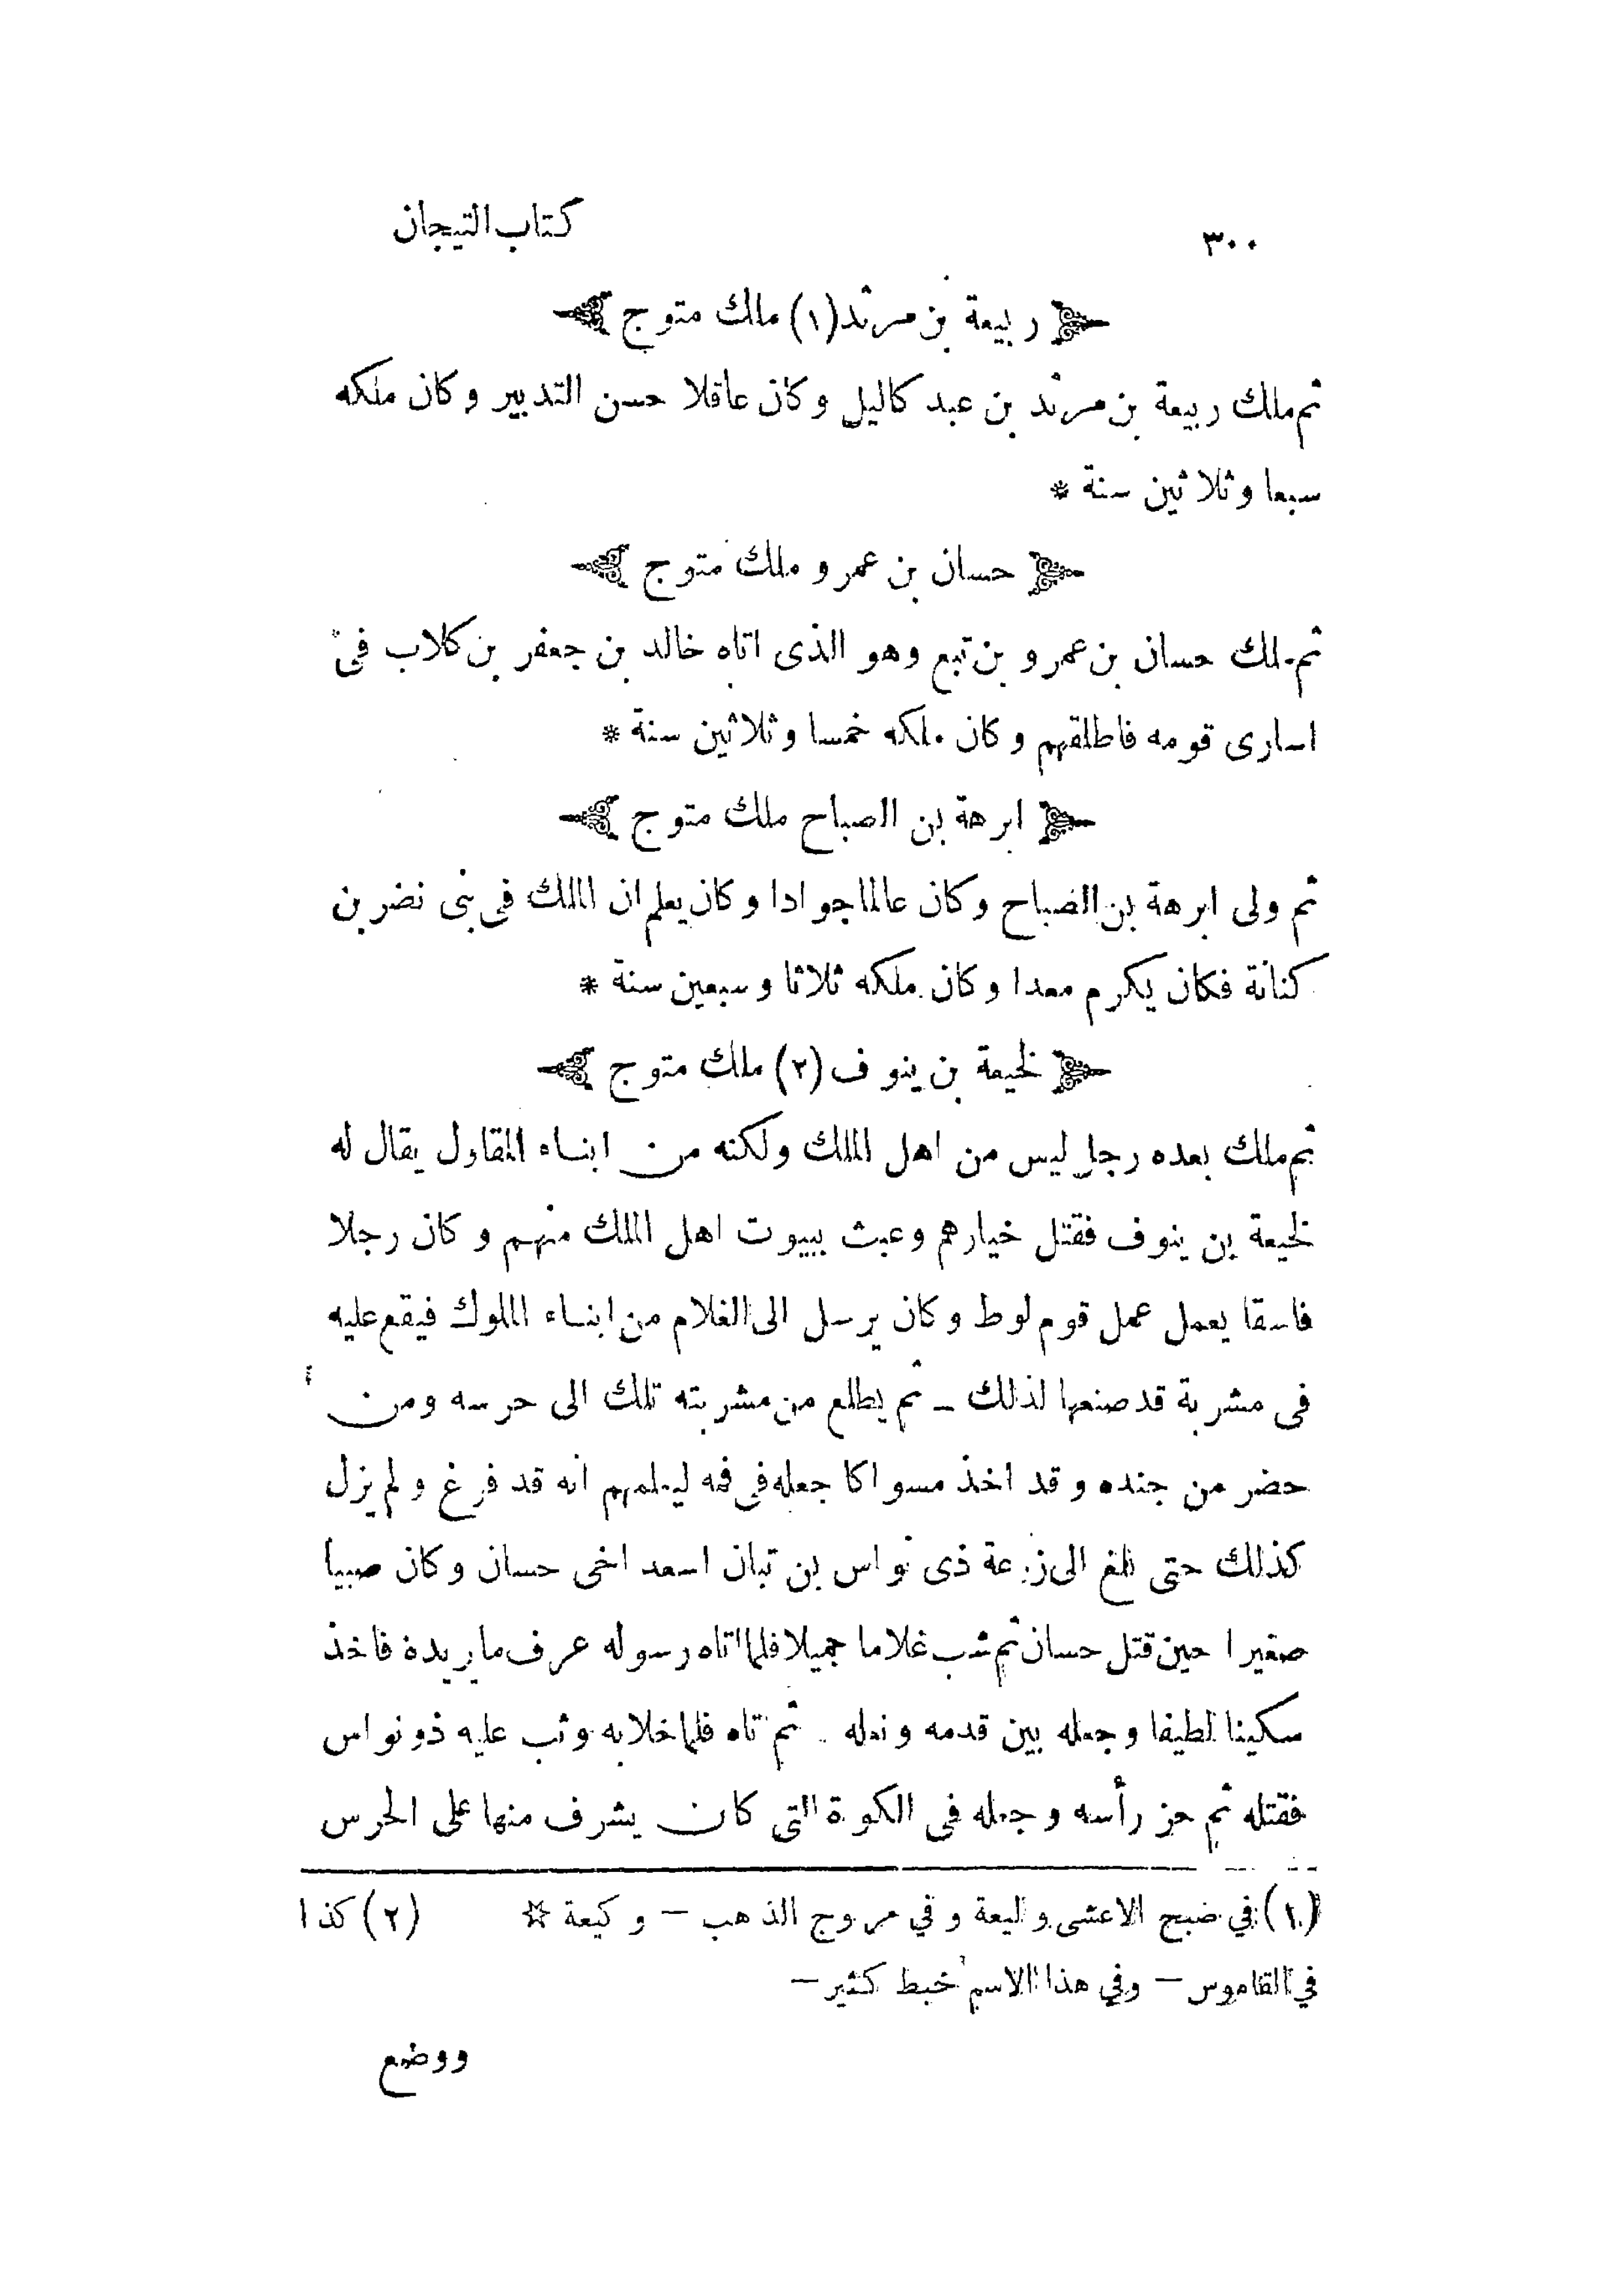 ٣٠٠
كتاب التيجان
ربيعة بن مرثد (١) ملك متوج
ثم ملك ربيعة بن مرثد بن عبد كاليل وكان عاقلا حسن التدبير وكان ملكه
سبعا وثلاثين سنة *
حسان بن عمرو ملك متوج
ثم ملك حسان بن عمرو بن تبع وهو الذى اتاه خالد بن جعفر بن كلاب فى
اسارى قومه فاطلقهم وكان ملكه خمسا وثلاثين سنة *
ابرهة بن الصباح ملك متوج
ثم ولى ابرهة بن الصباح وكان عالما جوادا وكان يعلم ان الملك فى بنى نضر بن
كنانة فكان يكرم معدا وكان ملكه ثلاثا وسبعين سنة *
لخيعة بن ينوف (٢) ملك متوج
ثم ملك بعده رجل ليس من اهل الملك ولكنه من ابناء المقاول يقال له
لخيعة بن ينوف فقتل خيارهم وعبث ببيوت اهل الملك منهم وكان رجلا
فاسقا يعمل عمل قوم لوط وكان يرسل الى الغلام من ابناء الملوك فيقع عليه
فى مشربة قد صنعها لذلك ــ ثم يطلع من مشربته تلك الى حرسه ومن
حضر من جنده وقد اخذ مسواكا جعله فى فمه ليعلمهم انه قد فرغ ولم يزل
كذلك حتى بلغ الى زرعة ذى نواس بن تبان اسعد اخى حسان وكان صبيا
صغيرا حين قتل حسان ثم شب غلاما جميلا فلما اتاه رسوله عرف ما يريده فاخذ
سكينا لطيفا وجعله بين قدمه ونعله ثم اتاه فلما خلا به وثب عليه ذونواس
فقتله ثم حز رأسه وجعله فى الكوة التى كان يشرف منها على الحرس
(١) في ضبح الاعشى وليعة وفي مروج الذهب — وكيعة ☆ (٢) كذا
في القاموس — وفي هذا الاسم خبط كثير —
ووضع